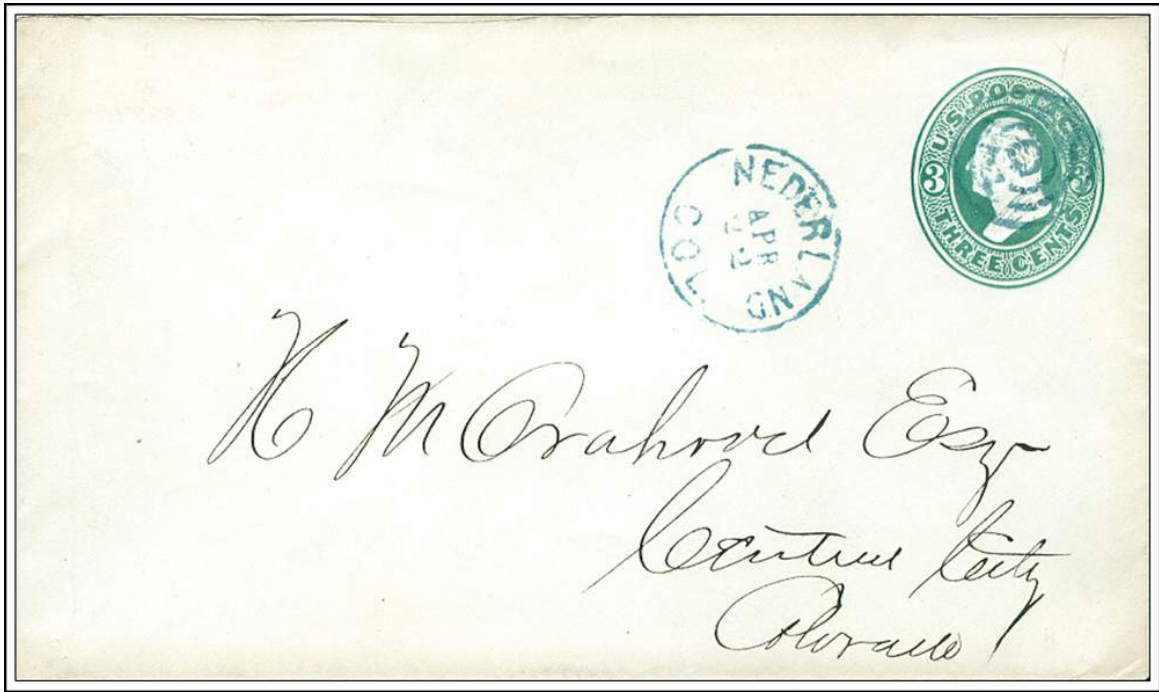 U.S. POSTAGE
3 3
THREE CENTS
NEDERLAND
APR
COL.
H M Orahood Esq
Central City
Colorado